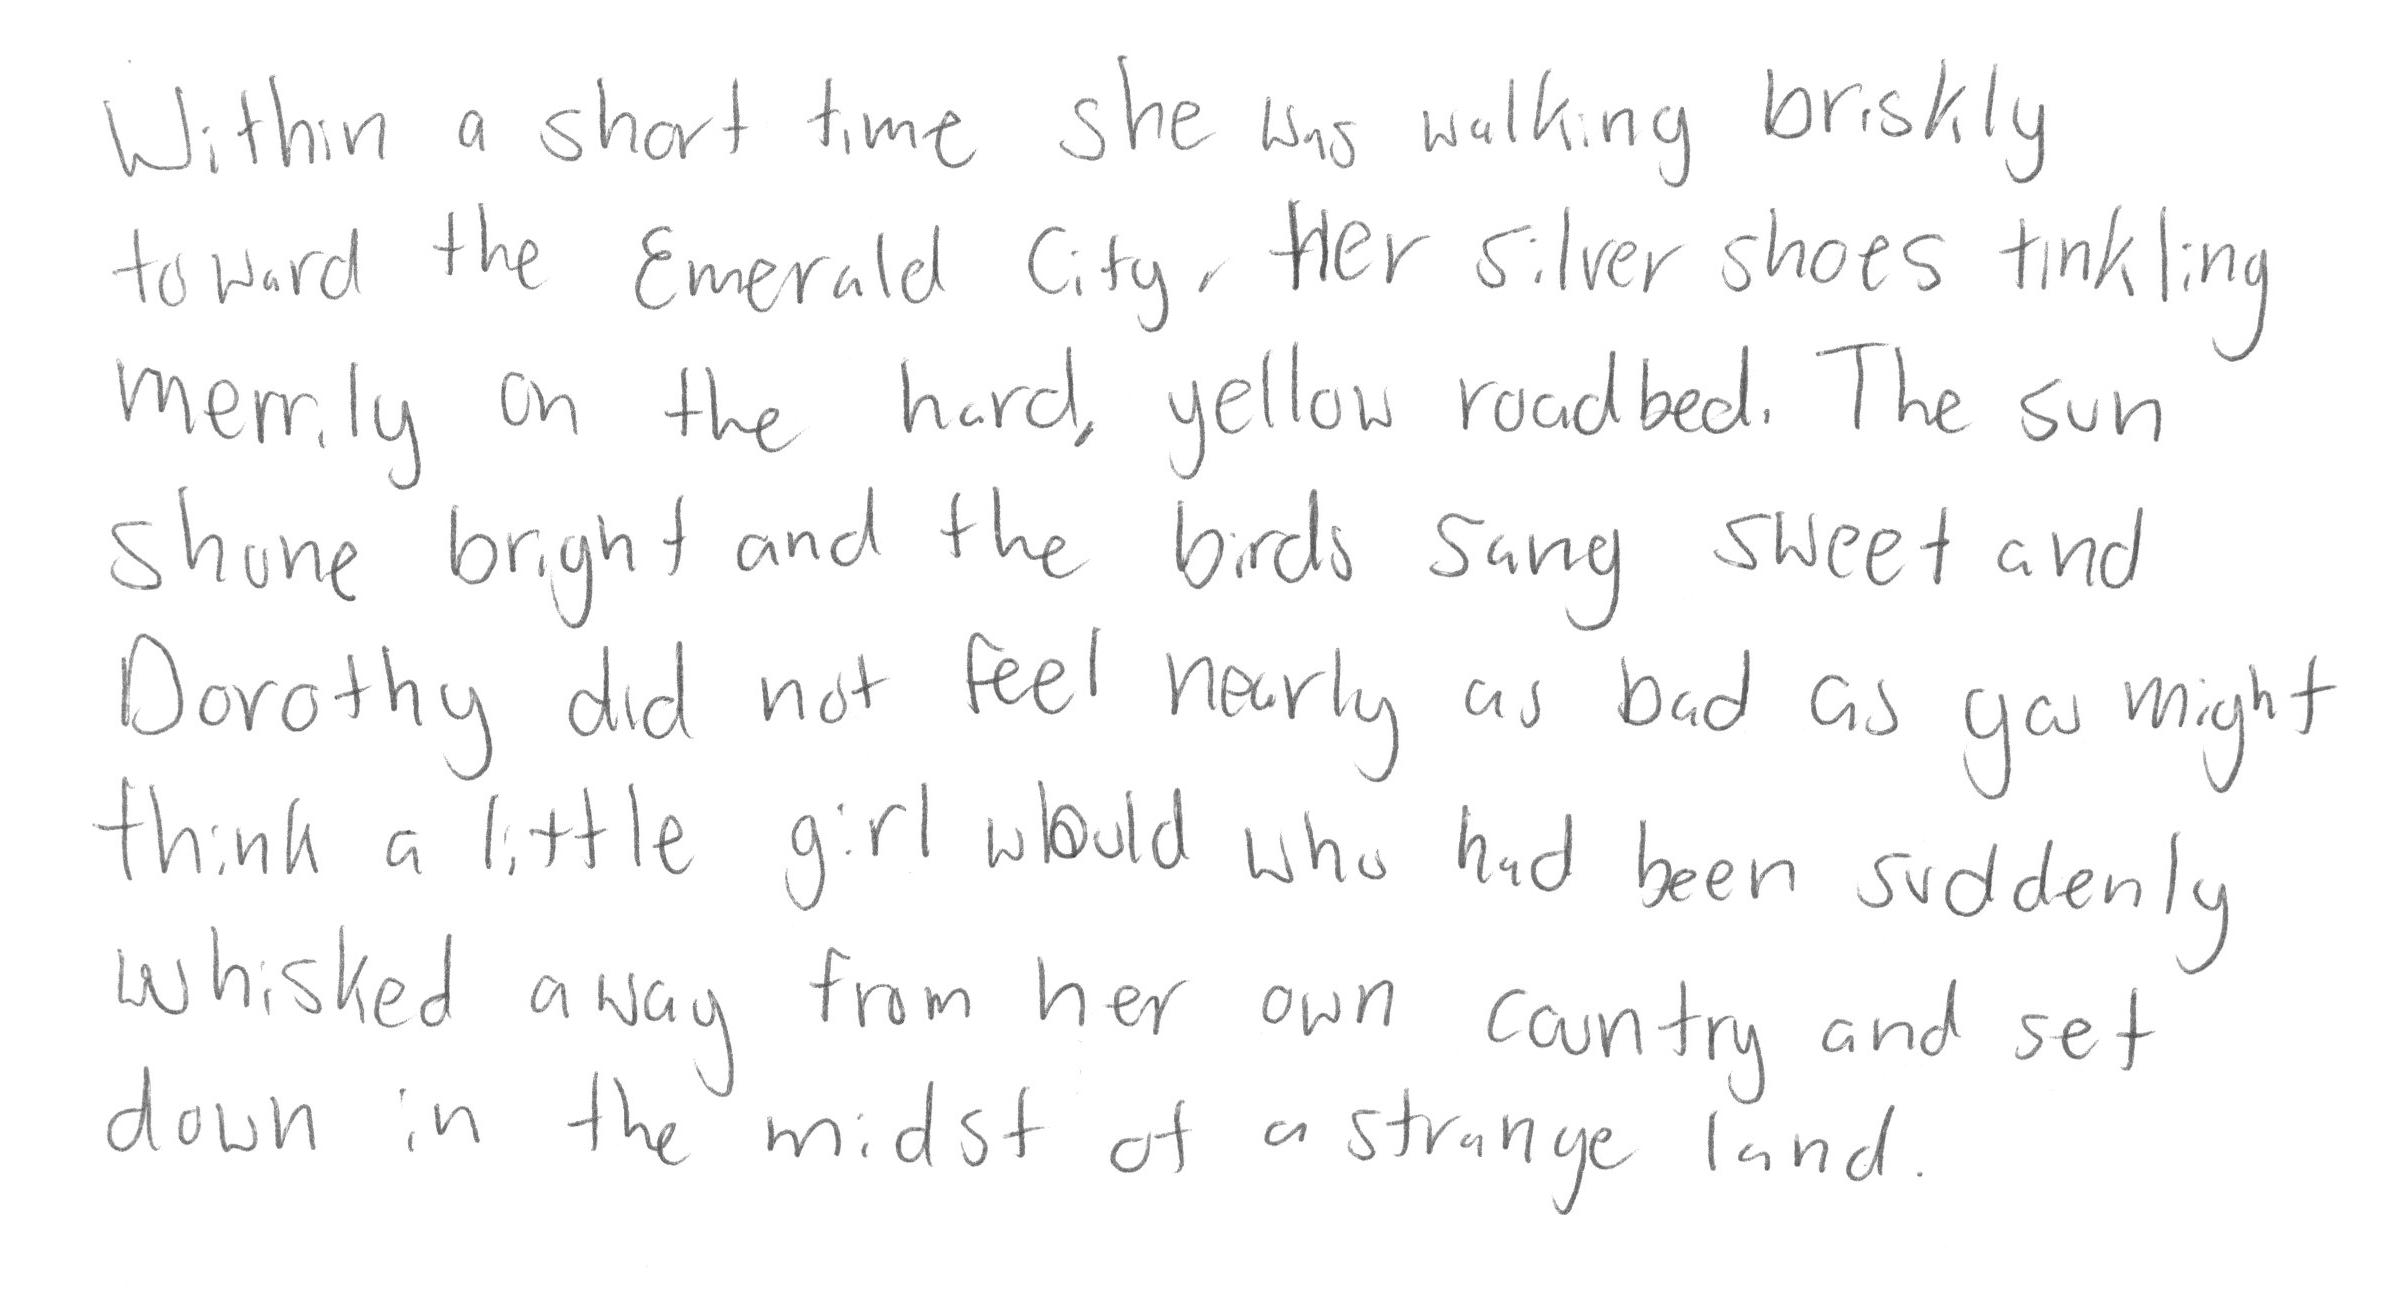 Within a short time she was walking briskly
toward the Emerald City, Her silver shoes tinkling
merrily on the hard, yellow roadbed. The sun
shone bright and the birds sang sweet and
Dorothy did not feel nearly as bad as you might
think a little girl would who had been suddenly
whisked away from her own country and set
down in the midst of a strange land.